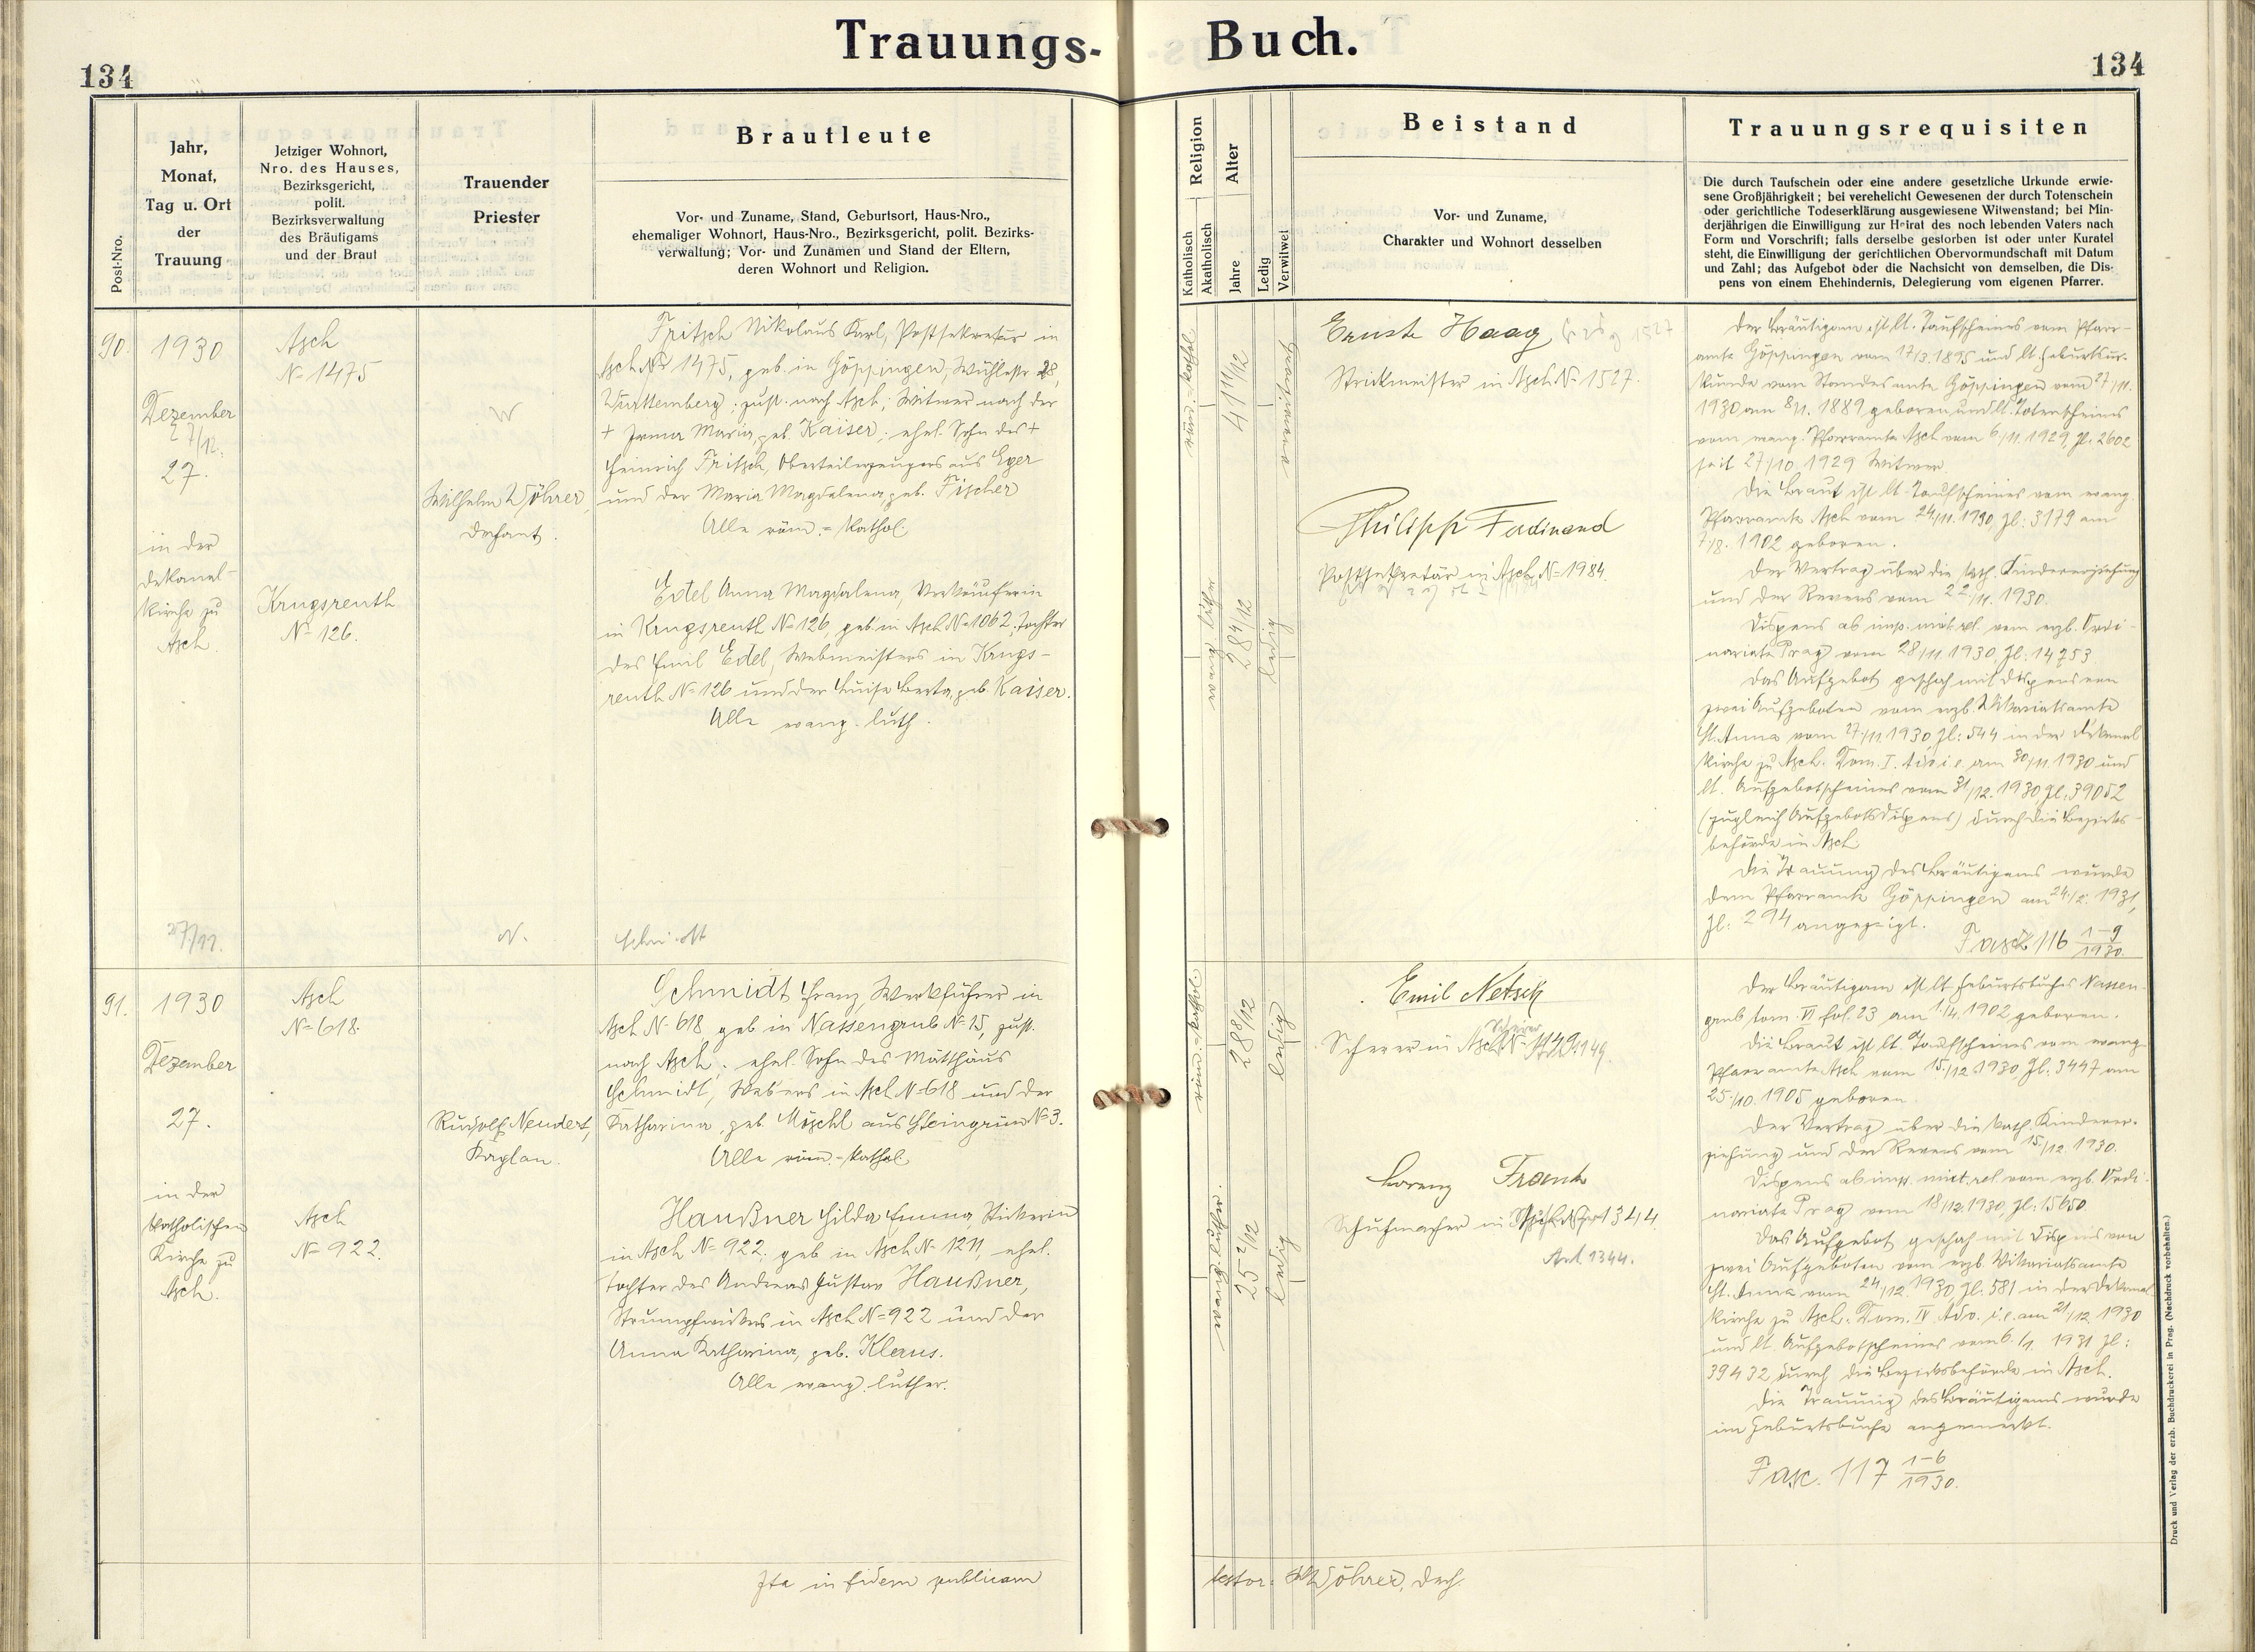 Trauungs- Buch.
134
134
Post-Nro.
Jahr,
Monat,
Tag u. Ort
der
Trauung
Jetziger Wohnort,
Nro. des Hauses,
Bezirksgericht,
polit.
Bezirksverwaltung
des Bräutigams
und der Braut
Trauender
Priester
Brautleute
Vor- und Zuname, Stand, Geburtsort, Haus-Nro.,
ehemaliger Wohnort, Haus-Nro., Bezirksgericht, polit. Bezirks-
verwaltung; Vor- und Zunamen und Stand der Eltern,
deren Wohnort und Religion.
Religion
Katholisch
Akatholisch
Alter
Jahre
Ledig
Verwitwet
Beistand
Vor- und Zuname,
Charakter und Wohnort desselben
Trauungsrequisiten
Die durch Taufschein oder eine andere gesetzliche Urkunde erwie-
sene Großjährigkeit; bei verehelicht Gewesenen der durch Totenschein
oder gerichtliche Todeserklärung ausgewiesene Witwenstand; bei Min-
derjährigen die Einwilligung zur Heirat des noch lebenden Vaters nach
Form und Vorschrift; falls derselbe gestorben ist oder unter Kuratel
steht, die Einwilligung der gerichtlichen Obervormundschaft mit Datum
und Zahl; das Aufgebot oder die Nachsicht von demselben, die Dis-
pens von einem Ehehindernis, Delegierung vom eigenen Pfarrer.
90.
1930
Dezember
27/12.
27.
in der
Dekanal-
kirche zu
Asch.
Asch
N= 1475
Krugsreuth
N= 126.
Wilhelm Wöhrer,
Dechant.
Fritsch Nikolaus Karl, Postsekretär in
Asch N= 1475, geb. in Göppingen, Wühlestr 28,
Württemberg; zust. nach Asch; Witwer nach der
+ Irma Maria, geb. Kaiser; ehel. Sohn des +
Heinrich Fritsch, Oberteilerzeugers aus Eger
und der Maria Magdalena, geb. Fischer
Alle röm.=kathol.
Edel Anna Magdalena, Verkäuferin
in Krugsreuth N=126, geb. in Asch N=1062, Tochter
des Emil Edel, Webmeisters in Krugs-
reuth N=126 und der Luise Berta, geb. Kaiser.
Alle evang. luth.
röm.=kathol.
41 11/12
evang. luther.
28 4/12
ledig
Ernst Haag
Strickmeister in Asch N= 1527.
Philipp Ferdinand
Postsekretär in Asch N=1984.
Der Bräutigam ist lt. Taufscheines vom Pfarr-
amte Göppingen vom 17/3.1895 und lt. Geburtsur-
kunde vom Standesamte Göppingen vom 27/11.
1930 am 8/1. 1889 geboren und lt. Totenscheines
vom evang. Pfarramte Asch vom 6./11.1929, Zl: 2602
seit 27/10 1929 Witwer.
Die Braut ist lt. Taufscheines vom evang.
Pfarramte Asch vom 24/11.1930, Zl: 3179 am
7/8. 1902 geboren.
Der Vertrag über die kath. Kindererziehung
und der Revers vom 22/11. 1930.
Dispens ab imp. mixt. rel. vom erzb. Ordi-
nariate Prag vom 28/11.1930, Zl: 14753.
Das Aufgebot geschah mit Dispens von
zwei Aufgeboten vom erzb. Vikariatsamte
St. Anna vom 27/11.1930, Zl: 544 in der Dekanal
kirche zu Asch: Dom. I. Adv. i. e. am 30/11 1930 und
lt. Aufgebotscheines vom 31/12. 1930 Zl: 39052
(zugleich Aufgebotsdispens) durch die Bezirks-
behörde in Asch
Die Trauung des Bräutigams wurde
dem Pfarramte Göppingen am 24./2. 1931,
Zl: 294 angezeigt.
Fasz 116 1-9/1930
91.
1930
Dezember
27.
in der
katholischen
Kirche zu
Asch.
Asch
N=618.
Asch
N= 922.
Rudolf Neudert,
Kaplan.
Schmidt Franz, Werkführer in
Asch N= 618 geb in Nassengrub N= 15, zust.
nach Asch; ehel. Sohn des Matthäus
Schmidt, Webers in Asch N=618 und der
Katharina, geb. Möschl aus Steingrün N=3.
Alle röm.=kathol.
Haußner Hilda Emma, Stickerin
in Asch N= 922, geb in Asch N= 1211, ehel.
Tochter des Andreas Gustav Haußner,
Strumpfwirkers in Asch N=922 und der
Anna Katharina, geb. Klaus.
Alle evang. luther.
röm.=kathol.
28 8/12
ledig
evang. luther.
25 2/12
ledig
Emil Netsch
Scherer in Asch N= 1149.
Lorenz Frank
Schuhmacher in Asch 1344.
Asch 1344.
Der Bräutigam ist lt. Geburtsbuches Nassen-
grub tom. VI fol. 23 am 1./4. 1902 geboren.
Die Braut ist lt. Taufscheines vom evang.
Pfarramte Asch vom 15./12.1930, Zl: 3447 am
25./10. 1905 geboren.
Der Vertrag über die kath. Kinderer-
ziehung und der Revers vom 15./12. 1930.
Dispens ab imp. mixt. rel. vom erzb. Ordi-
nariate Prag vom 18/12.1930, Zl: 15650.
Das Aufgebot geschah mit Dispens von
zwei Aufgeboten vom erzb. Vikariatsamte
St. Anna vom 24/12. 1930, Zl. 581 in der Dekanal
kirche zu Asch: Dom. IV. Adv. i. e. am 21/12 1930
und lt. Aufgebotscheines vom 6./1. 1931 Zl:
39432 durch die Bezirksbehörde in Asch.
Die Trauung des Bräutigams wurde
im Geburtsbuche angemerkt.
Fasc. 117 1-6/1930.
Ita in fidem publicam
testor: W. Wöhrer, Dech.
Druck und Verlag der erzb. Buchdruckerei in Prag. (Nachdruck vorbehalten.)